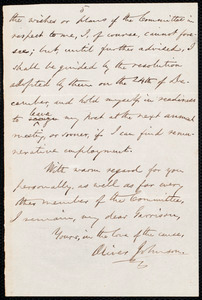 5
the wishes or plans of the Committee in
respect to me, I, of course, cannot fore-
see; but, until further advised, I
shall be guided by the resolution
adopted by them on the 24th of De-
cember, and hold myself in readiness
to leave my post at the next annual
meeting, or sooner, if I can find remu-
nerative employment.
With warm regard for you
personally, as well as for every
other member of the Committee,
I remain, my dear Garrison,
Yours, in the love of the cause,
Oliver Johnson